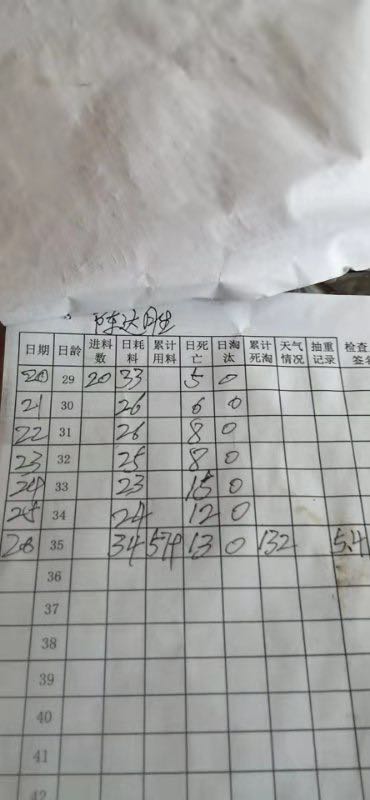 陈达胜
日期 日龄 进料数 日耗料 累计用料 日死亡 日淘汰 累计死淘 天气情况 抽重记录 检查 签名
20 29 20 33 5 0
21 30 26 6 0
22 31 26 8 0
23 32 25 8 0
24 33 23 15 0
25 34 24 12 0
26 35 34 574 13 0 132 5.4
36
37
38
39
40
41
42